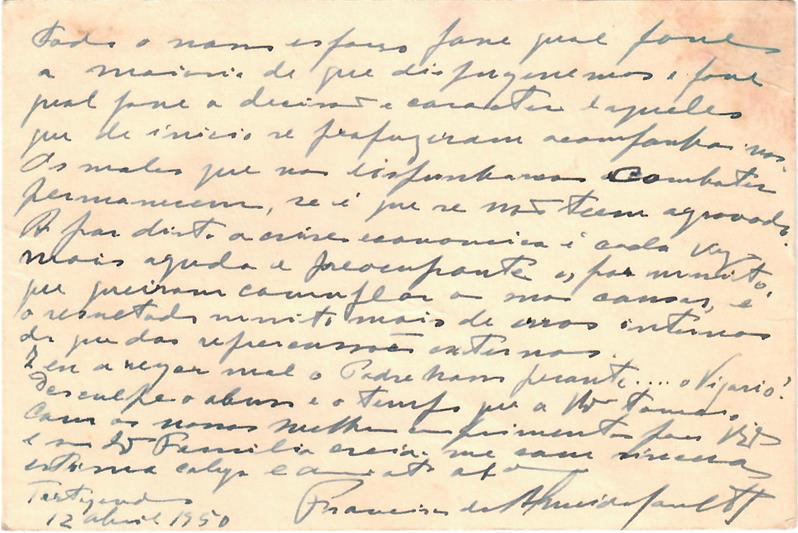 Todo o nosso esforço fosse qual fosse
a maioria de que dispuzessemos e fosse
qual fosse a decisão e caracter d'aqueles
que de inicio se propuzeram acompanhar-nos.
Os males que nos combater
permanecem, se é que se não teem agravado.
A par disto a crise economica é cada vez
mais aguda e preocupante e, por muito
que queiram camuflar as suas causas, é
o resultado muito mais de erros internos
do que das repercussões externas.
E eu a rezar mal o Padre Nosso perante.... o Vigario!
Desculpe o abuso e o tempo que a V. tomar.
Com os nossos melhores cumprimentos para V.
e sua Familia creia-me com sincera
estima colega e amigo
12 abril 1950
Francisco de Almeida